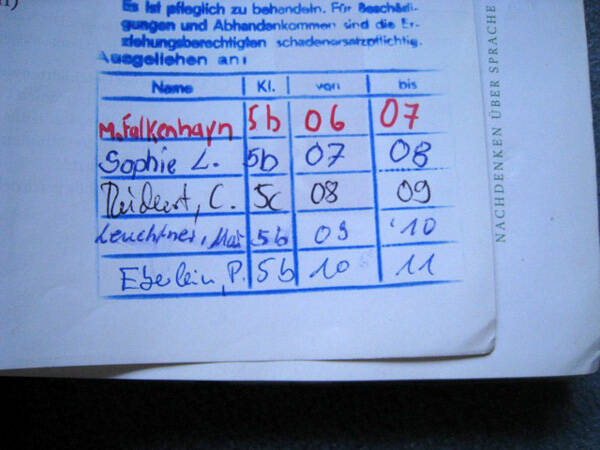 Es ist pfleglich zu behandeln. Für Beschädi-
gungen und Abhandenkommen sind die Er-
ziehungsberechtigten schadenersatzpflichtig.
Ausgeliehen an:
Name Kl. von bis
M. Falkenhayn 5b 06 07
Sophie L. 5b 07 08
C. 5c 08 09
Leuchtner, 5b 09 '10
Eberlein, P. 5b 10 11
NACHDENKEN ÜBER SPRACHE